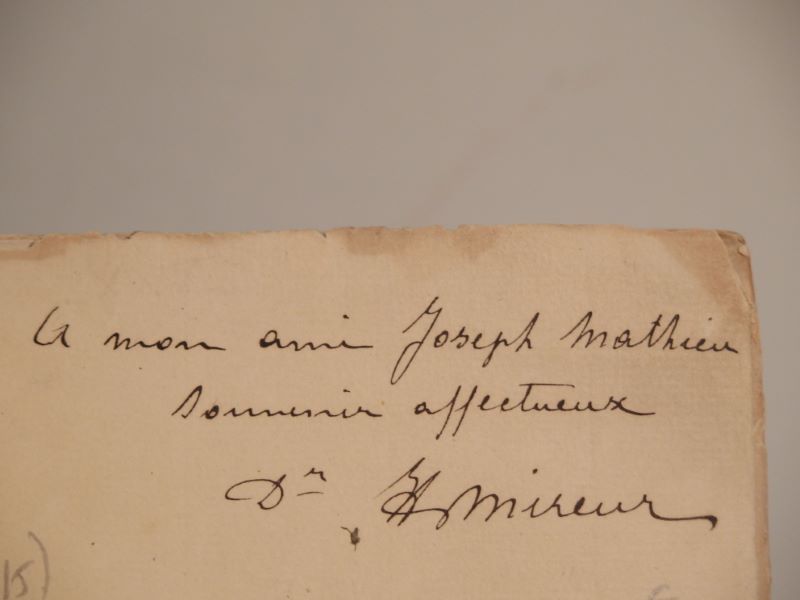 A mon ami Joseph Mathieu
Souvenir affectueux
Dr H Mireur
15)